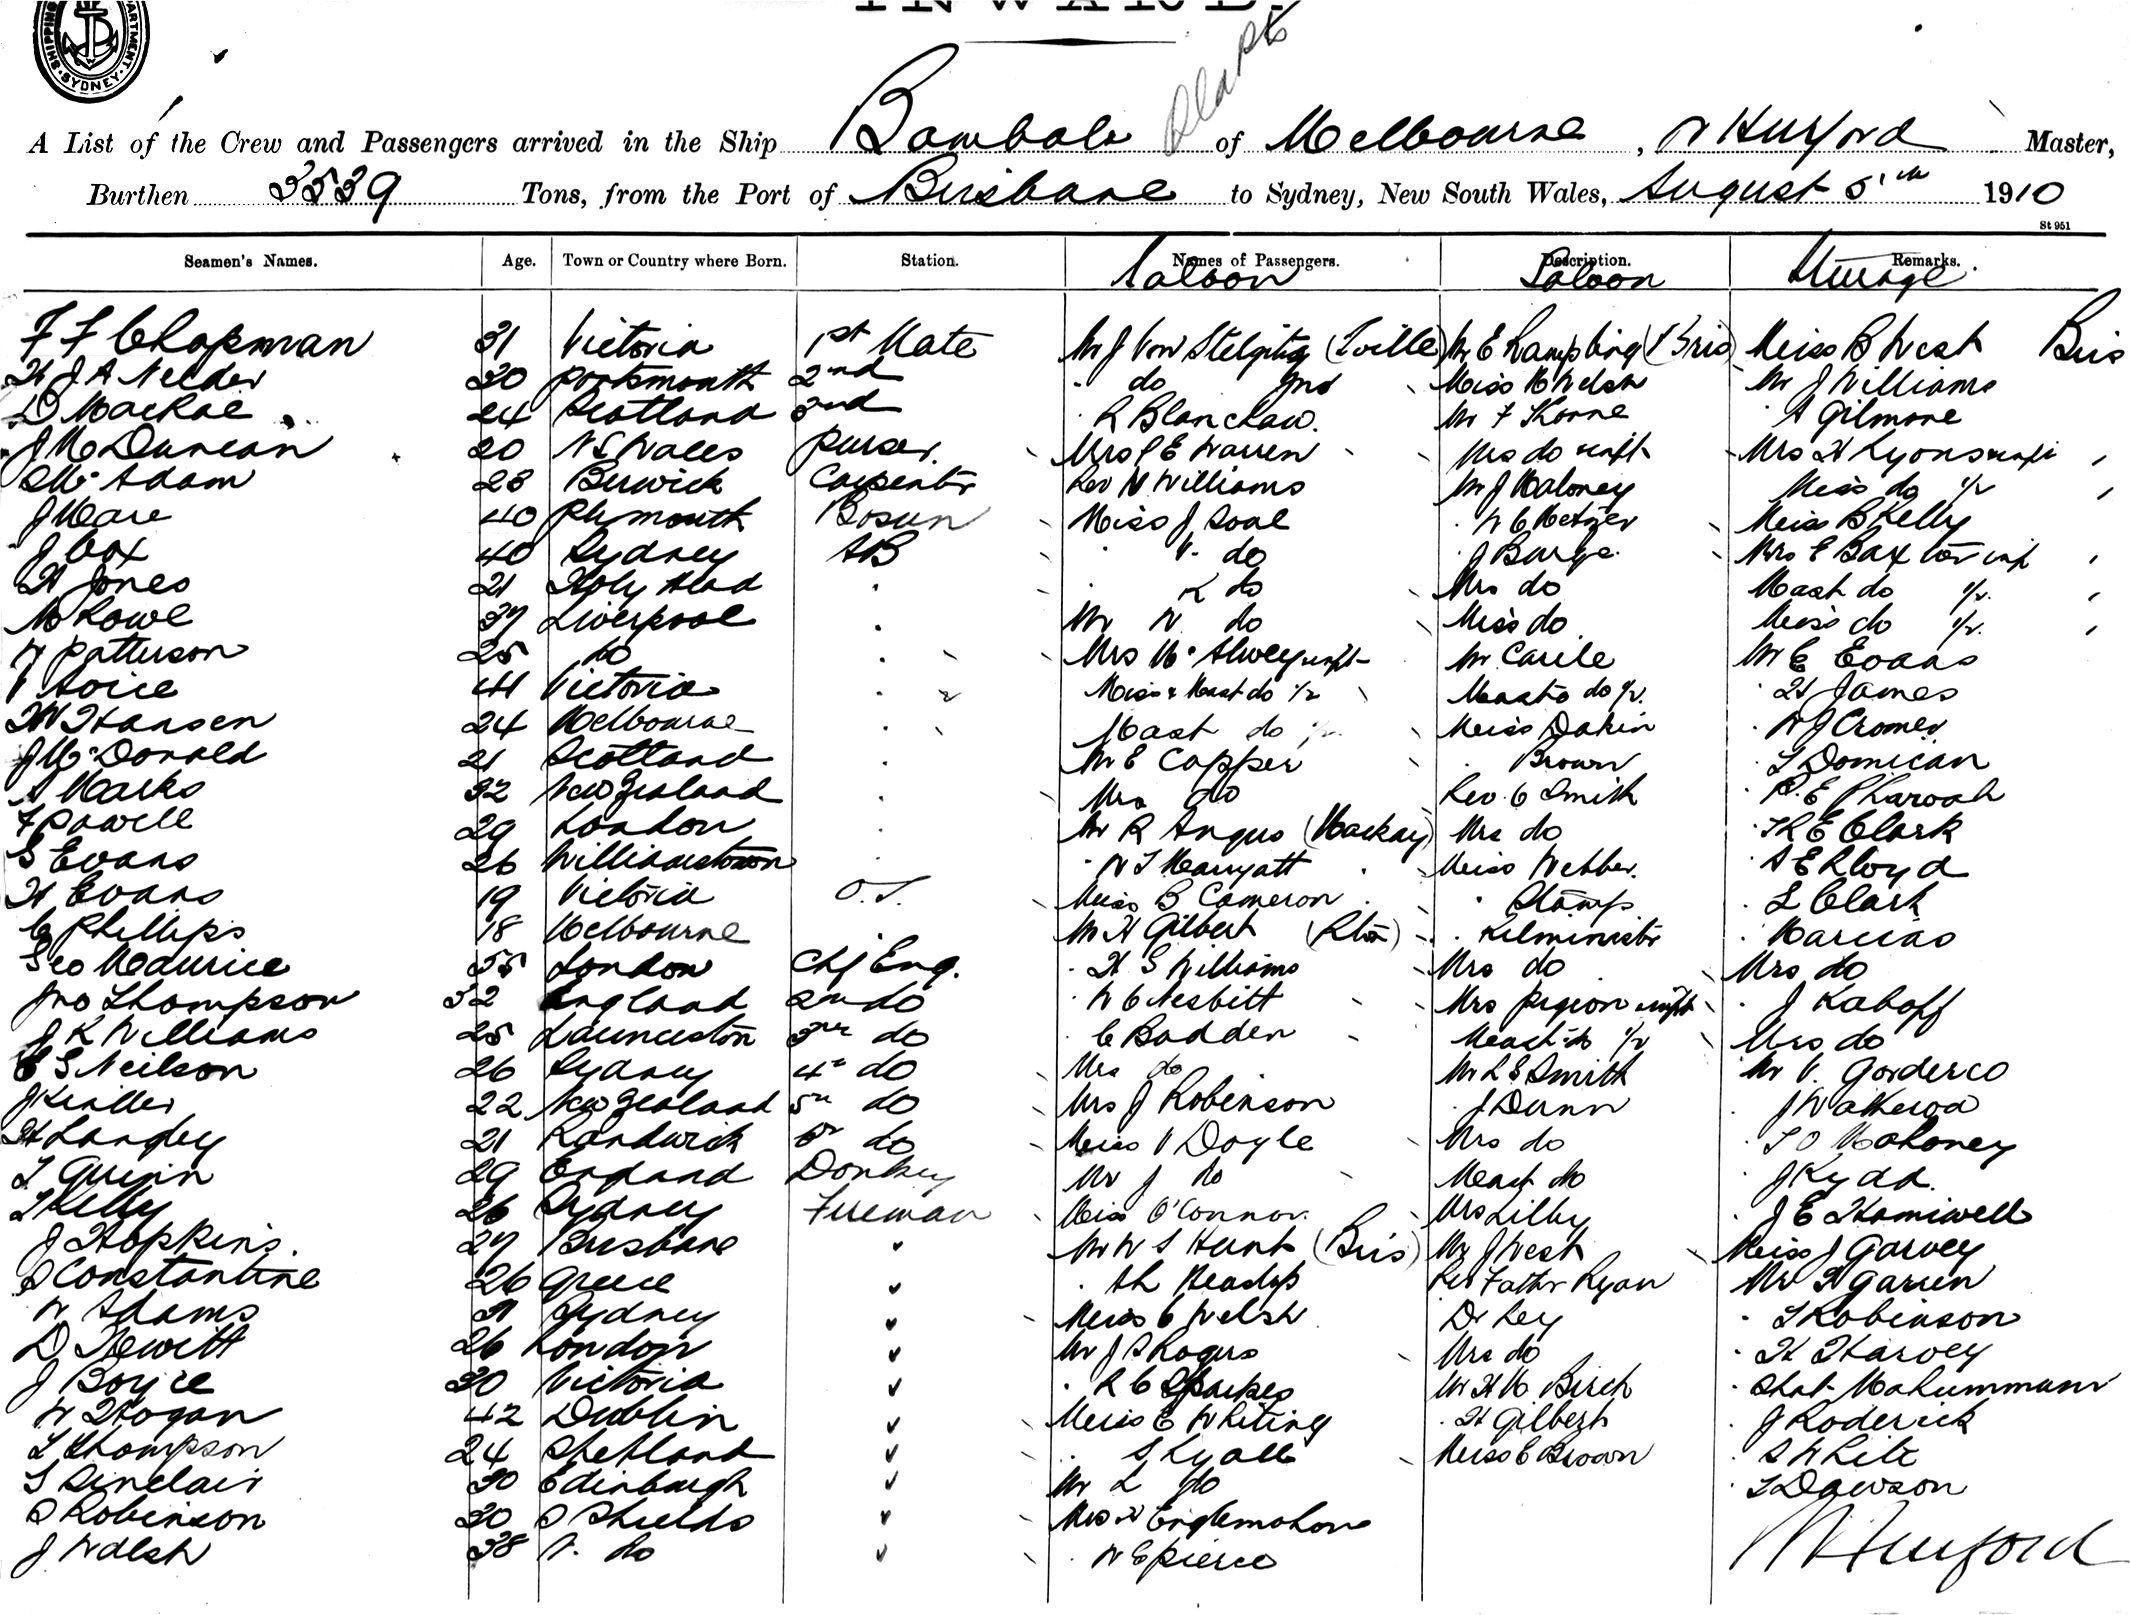 INWARD.
SHIPPING DEPARTMENT. SYDNEY.
A List of the Crew and Passengers arrived in the Ship Bombala of Melbourne, W Hurford Master,
Burthen 3539 Tons, from the Port of Brisbane to Sydney, New South Wales, August 5th 1910
St 951
Seamen's Names. Age. Town or Country where Born. Station. Names of Passengers. Description. Remarks.
Saloon Saloon Steerage
F F Chapman 31 Victoria 1st Mate Mr J Von (Tville) Mr E Rampling (Bris) Miss B West Bris
H J A Nelder 30 Portsmouth 2nd do Jnr Miss M Welsh Mr J Williams
D MacRae 24 Scotland 3rd R Blanchaw. Mr F Thorne A Gilmore
J M Duncan 20 N S Wales Purser. Mrs P E Warren Mrs do & inft Mrs H Lyons & inf
Mc Adam 28 Berwick Carpenter Rev N Williams Mr J Maloney Miss do ½
J Mare 40 Plymouth Bosun Miss J Soal W C Metzer Miss B Kelly
J Cox 40 Sydney AB V. do J Burge. Mrs E Baxter & inf
H Jones 21 Holy Head K do Mrs do Mast do ½
M Rowe 37 Liverpool Mr N do Miss do Miss do ½
W Patterson 25 do Mrs Mc & inft Mr Carile Mr E Evans
V Soice 41 Victoria Miss & Mast do ½ Masts do ½ H James
H W Hansen 24 Melbourne Mast do Miss Dakin W J Cromer
J McDonald 21 Scotland Mr E Copper Brown T Domican
A Marks 32 New Zealand Mrs do Rev. C Smith P. E Pharoah
F Powell 29 London Mr R Angus (Mackay) Mrs do T R E Clark
S Evans 26 Williamstown W T Marryatt Miss Webber. A E Lloyd
H Evans 19 Victoria O.S. Miss B Cameron Stamp L Clark
C Phillips 18 Melbourne Mr H Gilbert (Rton) Kilminister Marcias
Geo Maurice 55 London Chf Eng. H S Williams Mrs do Mrs do
Jno Thompson 32 England 2nd do W C Nesbitt Mrs Pigeon & inft J Kaboff
J R Williams 25 Launceston 3rd do C Badden Mast do ½ Mrs do
C S Neilson 26 Sydney 4th do Mrs do Mr L S Smith Mr V. Gorderco
J 22 New Zealand 5th do Mrs J Robinson J Dunn J
H Langley 21 Randwick 6th do Miss V Doyle Mrs do T O Mahoney
T 29 England Donkey Mr J do Mast do J Kydd.
T Kelly 26 Sydney Fireman Miss O'Connor. Mrs Lilby J E Hamiwell
J Hopkins. 27 Brisbane Mr W S Hunt (Bris) Mr J West Miss J Garvey
S Constantine 26 Greece Rev Father Ryan Mr H
W Adams 31 Sydney Miss C Welsh Dr Ley T Robinson
D Hewitt 26 London Mr J S Rogers Mrs do H Harvey
J Boyce 30 Victoria R C Sparkes Mr H M Birch Shat Mahummam
W Hogan 42 Dublin Miss E Whiting H Gilbert J Roderick
T Thompson 24 Shetland S Lyall Miss C Brown S White
S Sinclair 30 Edinburgh Mr L do T Dawson
S Robinson 30 S Shields Mrs Englemohone
J Walsh 38 do W E Pierce
W Hurford